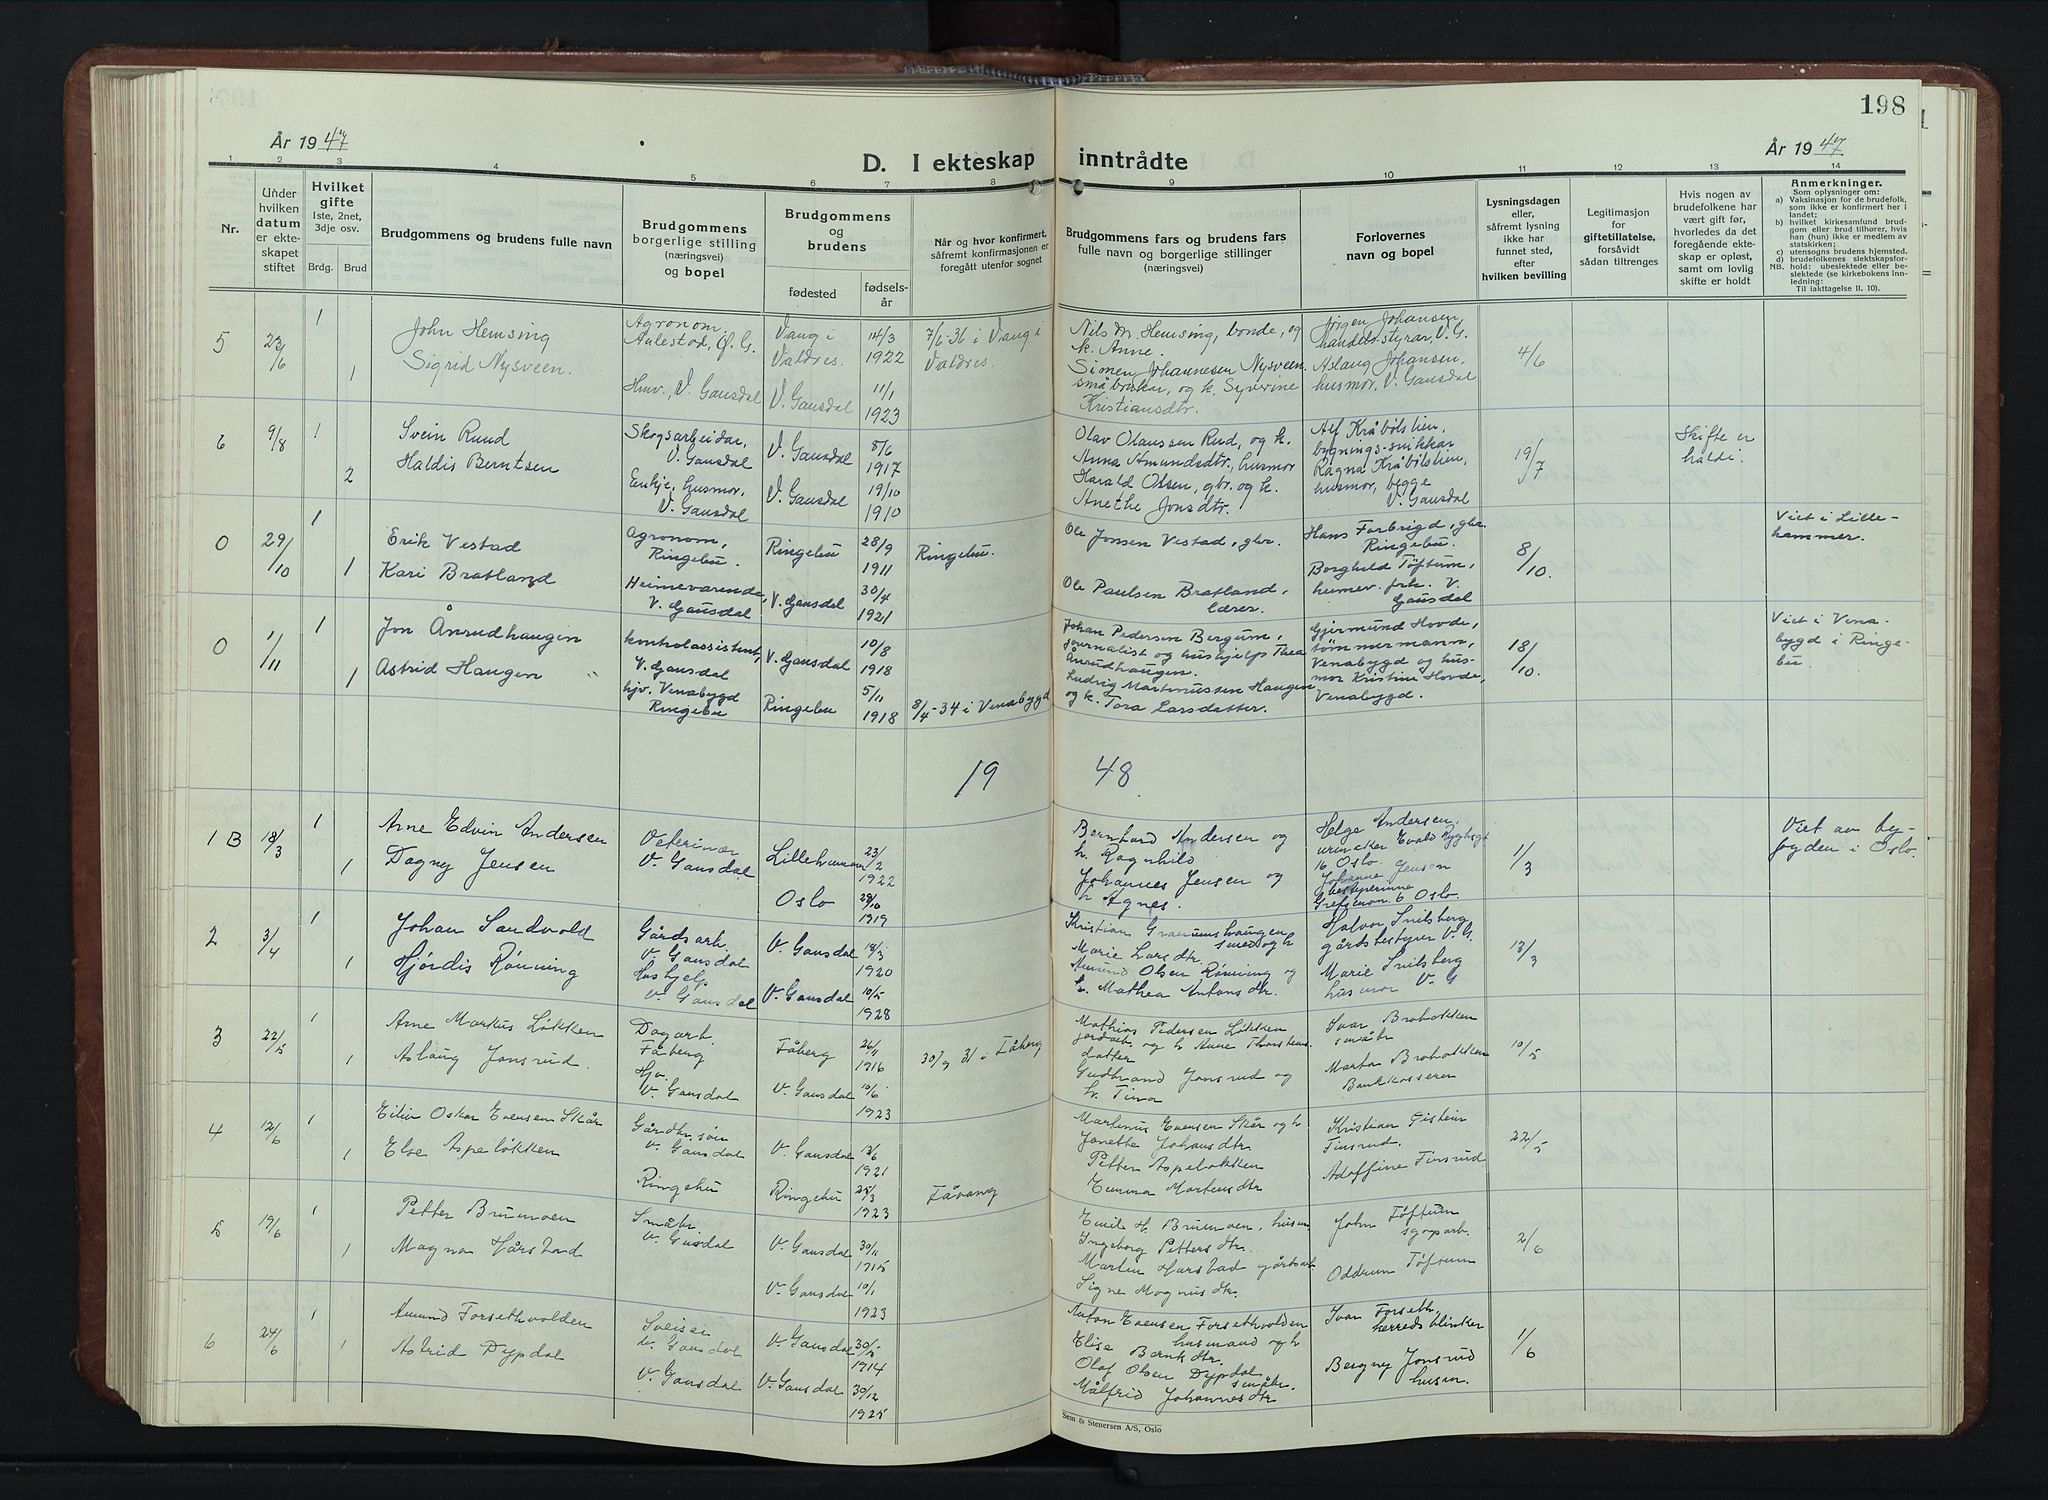 198
År 1947
År 1947
D. I ekteskap inntrådte
1 2 3 4 5 6 7 8 9 10 11 12 13 14
Nr.
Under hvilken datum er ekteskapet stiftet
Hvilket gifte 1ste, 2net, 3dje osv.
Brdg. Brud
Brudgommens og brudens fulle navn
Brudgommens borgerlige stilling (næringsvei) og bopel
Brudgommens og brudens
fødested
fødselsår
Når og hvor konfirmert, såfremt konfirmasjonen er foregått utenfor sognet
Brudgommens fars og brudens fars fulle navn og borgerlige stillinger (næringsvei)
Forlovernes navn og bopel
Lysningsdagen eller, såfremt lysning ikke har funnet sted, efter hvilken bevilling
Legitimasjon for giftetillatelse, forsåvidt sådan tiltrenges
Hvis nogen av brudefolkene har vært gift før, hvorledes da det foregående ekteskap er opløst, samt om lovlig skifte er holdt
Anmerkninger.
Som oplysninger om:
a) Vaksinasjon for de brudefolk, som ikke er konfirmert her i landet;
b) hvilket kirkesamfund brudgom eller brud tilhører, hvis han (hun) ikke er medlem av statskirken;
c) utensogns brudens hjemsted.
d) brudefolkenes slektskapsforhold:
NB. ubeslektede eller beslektede (se kirkebokens innledning:
Til iakttagelse II. 10).
5 23/6 1 John Hemsing Agronom, Aulestad, Ø. G. Vang i Valdres. 14/3 1922 7/6-36 i Vang i Valdres. Nils Hemsing, bonde, og k. Anne. Jørgen Johansen, handelsstyrar, V. G. 4/6
1 Sigrid Nysveen. Hmv., V. Gausdal V. Gausdal 11/1 1923 Simen Johannesen Nysveen småbrukar, og k. Syverine Kristiansdtr. Aslaug Johansen, husmor, V. Gausdal
6 9/8 1 Svein Ruud Skogsarbeidar, V. Gausdal V. Gausdal 8/6 1917 Olav Olaussen Rud, og k. Anna Amundsdtr., husmor Alf Kråbølslien, bygnings-snikkar 19/7 Skifte er haldi.
2 Haldis Berntsen Enkje, husmor, V. Gausdal V. Gausdal 19/10 1910 Harald Olsen, gbr. og k. Anethe Jonsdtr. Ragna Kråbølslien, husmor, begge V. Gausdal
0 29/10 1 Erik Vestad Agronom, Ringebu. Ringebu 28/9 1911 Ringebu. Ole Jonsen Vestad, gbr. Hans Forbrigd, gbr. Ringebu. 8/10. Viet i Lillehammer.
1 Kari Bratland Heimeværende, V. Gausdal V. Gausdal 30/4 1921 Ole Paulsen Bratland, lærer. Borghild Tøftum, frk. V. Gausdal
0 1/11 1 Jon Ånrudhaugen kontrolassistent, V. Gausdal V. Gausdal 10/8 1918 Johan Pedersen Bergum, journalist og hushjelp Thea Ånrudhaugen. Gjermund Hovde, tømmermann, Venabygd og husmor Kristine Hovde, Venabygd. 18/10. Viet i Venabygd i Ringebu
1 Astrid Haugen hjv. Venabygd Ringebu Ringebu 5/11 1918 8/4-34 i Venabygd Ludvig Martinussen Haugen og k. Tora Larsdatter.
19 48
1 B 18/3 1 Arne Edvin Andersen Veterinær V. Gausdal Lillehammer 23/2 1922 Bernhard Andersen og h. Ragnhild Helge Andersen. 16 Oslo. 1/3 Viet av byfogden i Oslo.
1 Dagny Jensen Oslo 1919 Johannes Jensen og h Agnes. Johanne Jensen bestyrerinne 6 Oslo.
2 3/4 1 Johan Sandvold Gårdsarb. V. Gausdal V. Gausdal 18/3 1920 Kristian smed og h Marie Larsdtr. Halvor Snilsberg gårdsbestyrer V. G. 13/3
1 Hjørdis Rønning Hushjelp. V. Gausdal V. Gausdal 10/5 1928 Amund Olsen Rønning og h. Mathea Antonsdtr. Marie Snilsberg husmor V. G
3 22/5 1 Arne Markus Løkken Dagarb. Fåberg Fåberg 26/11 1916 30/9 31 i Fåberg Mathias Pedersen Løkken jordarb. og h Anne Thorstensdatter Ivar Broholkken småbr 10/5
1 Aslaug Jonsrud. Hjv. V. Gausdal V. Gausdal 10/6 1923 Gudbrand Jonsrud og h. Tina Marta Brobakken
4 12/6 1 Eiliv Oskar Evensen Skår Gårdbr. søn V. Gausdal V. Gausdal 13/6 1921 Martinus Evensen Skår og h Janette Johansdtr. Kristian Finsrud. 22/5
1 Else Aspeløkken Ringebu Ringebu 25/3 1923 Fåvang Petter Aspeløkken Emma Martensdtr Adolfine Finsrud
5 19/6 1 Petter Brumoen Småbr. V. Gausdal V. Gausdal 30/11 1915 Emil H. Brumoen, husm. Ingeborg Pettersdtr. John Tøftum 2/6
1 Magna Hårstad V. Gausdal 10/1 1923 Martin Harstad gårdsarb Signe Magnusdtr. Oddrun Tøftum
6 24/6 1 Amund Forsethvolden Sveiser V. Gausdal V. Gausdal 30/5 1914 Anton Evensen Forsethvolden husmand og h Elise Berntsdtr. Ivar Forseth, herredsblinker 1/6
1 Astrid Dypdal V. Gausdal V. Gausdal 30/12 1925 Olaf Olsen Dypdal småbr. Målfrid Johannesdtr Bergny Jonsrud husm.
Sem & Stenersen A/S, Oslo